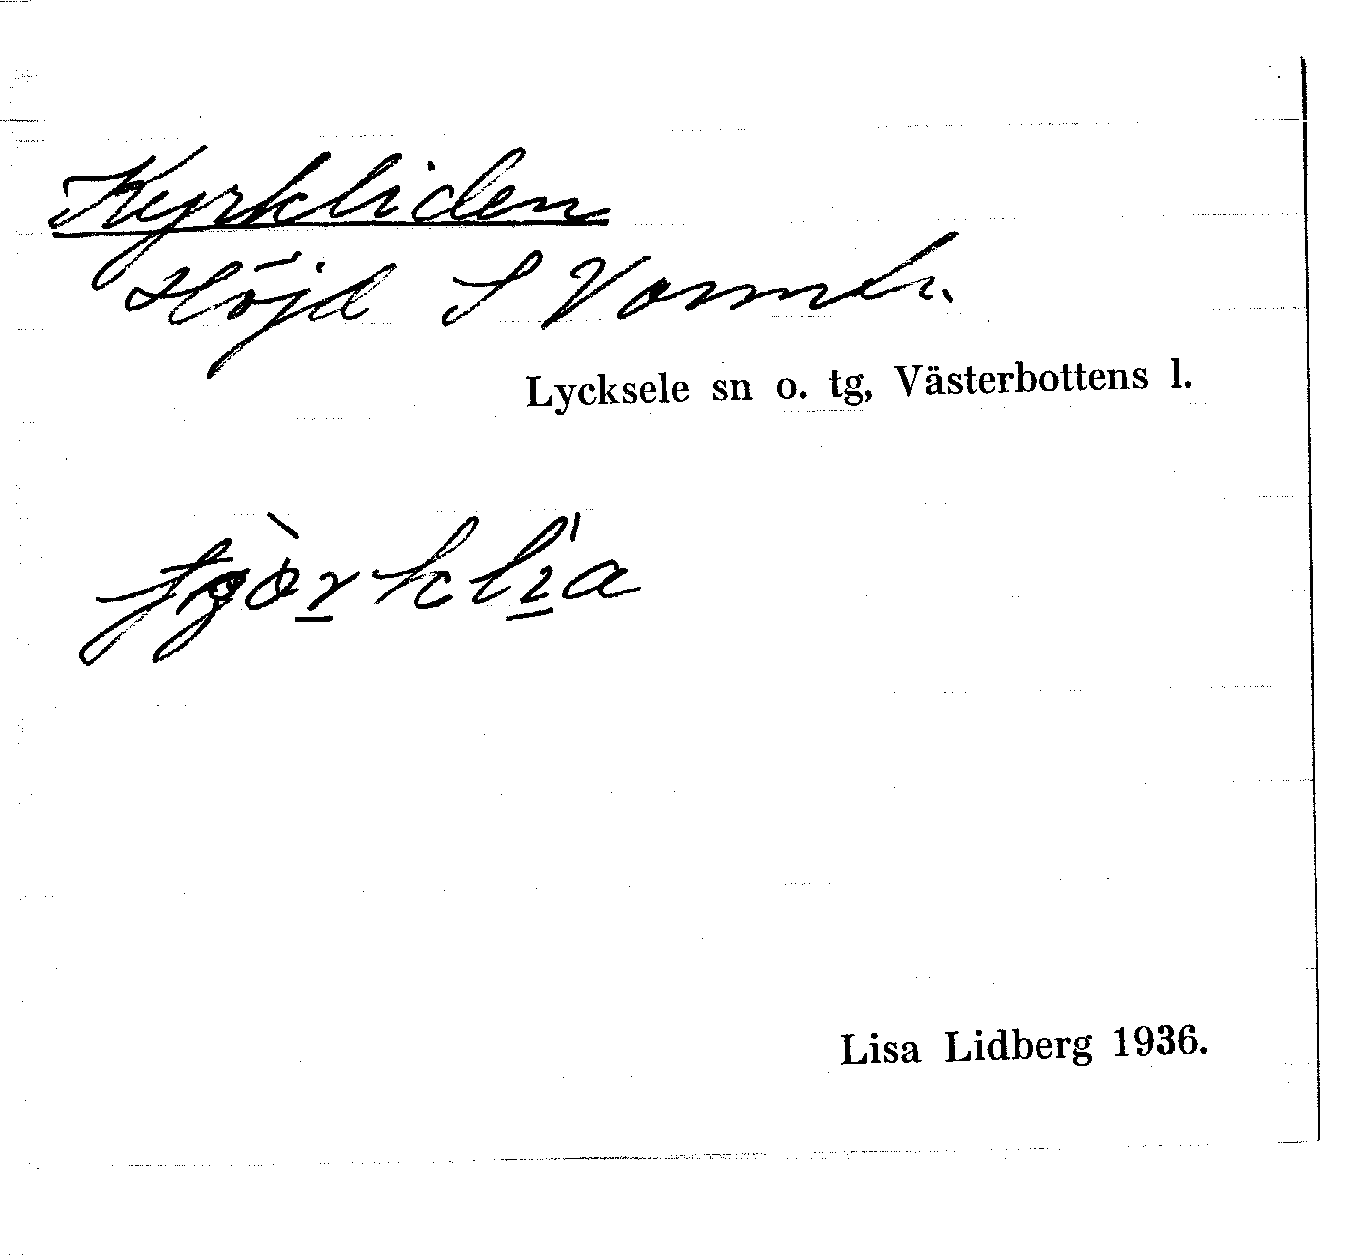 Kyrkliden
Höjd S Vormsele
Lycksele sn o. tg, Västerbottens l.
Lisa Lidberg 1936.